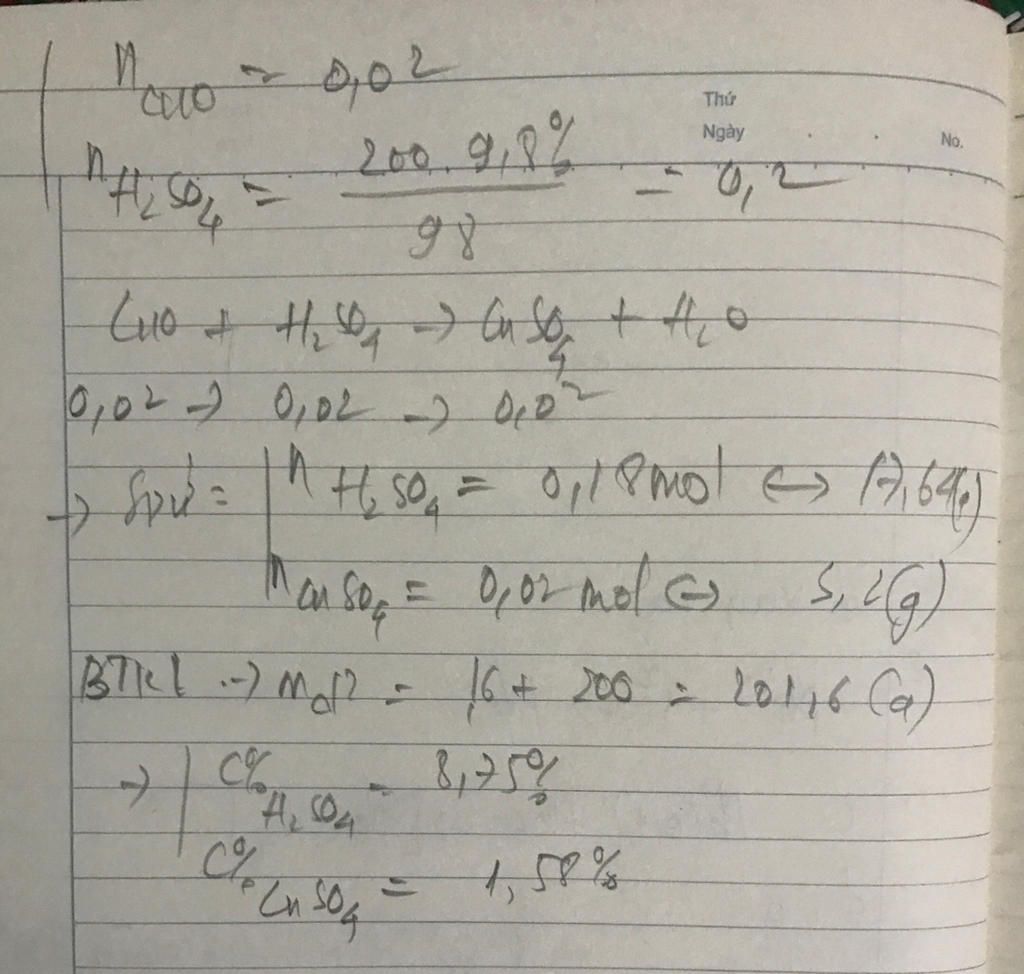 nCuO = 0,02
Thứ
Ngày . . No.
nH₂SO₄ = 200.9,8% / 98 = 0,2
CuO + H₂SO₄ → CuSO₄ + H₂O
0,02 → 0,02 → 0,02
→ Spứ = nH₂SO₄ = 0,18mol ↔ 17,64(g)
nCuSO₄ = 0,02 mol ↔ 3,2(g)
BTKL → mdd = 1,6 + 200 = 201,6 (g)
→ C%H₂SO₄ = 8,75%
C%CuSO₄ = 1,58%